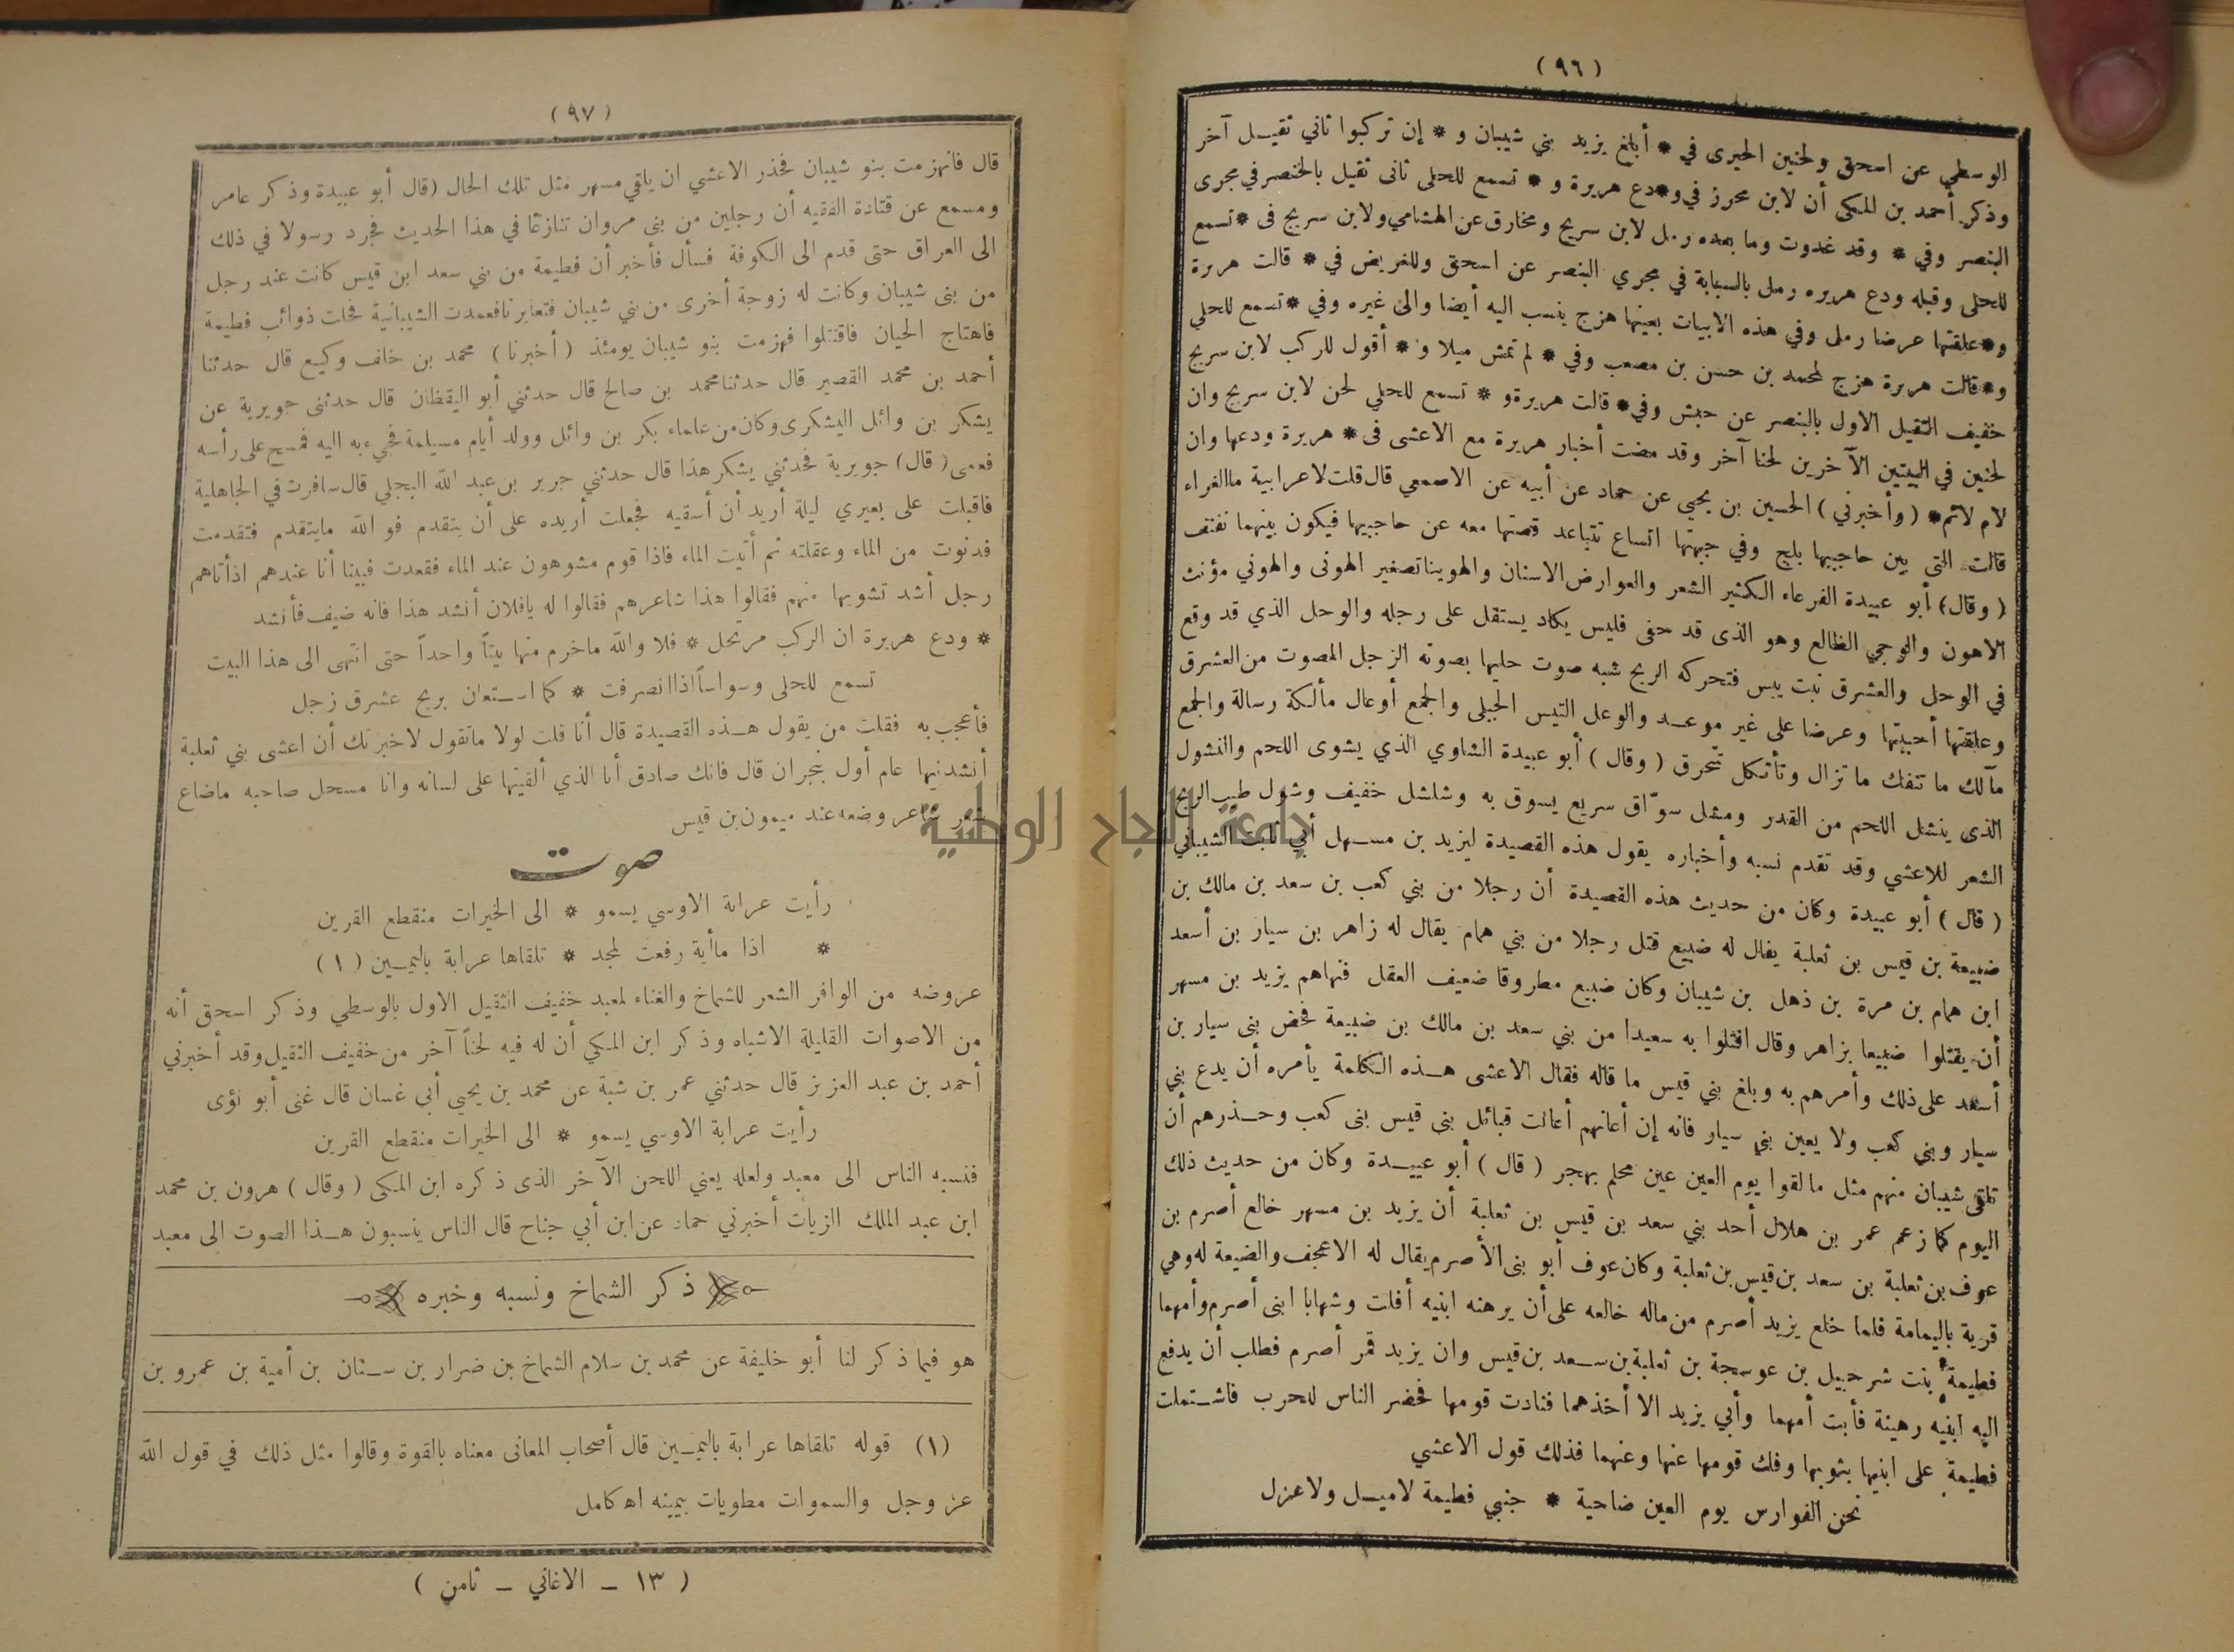 (٩٦)
الوسطي عن اسحق ولحنين الحيرى في * أبلغ يزيد بني شيبان و * إن تركبوا ثاني ثقيل آخر
وذكر أحمد بن المكى أن لابن محرز في و*دع هريرة و * تسمع للحلى ثانى ثقيل بالخنصر في مجرى
البنصر وفي * وقد غدوت وما بعده رمل لابن سريج ومخارق عن الهشامي ولابن سريج فى *تسمع
للحلى وقبله ودع هريره رمل بالسبابة في مجري البنصر عن اسحق وللغريض في * قالت هريرة
و*علقتها عرضا رمل وفي هذه الابيات بعينها هزج ينسب اليه أيضا والى غيره وفي *تسمع للحلي
و*قالت هريرة هزج لمحمد بن حسن بن مصعب وفي * لم تمش ميلا و * أقول للركب لابن سريج
خفيف الثقيل الاول بالبنصر عن حبش وفي* قالت هريرة و * تسمع للحلي لحن لابن سريج وان
لحنين في البيتين الآخرين لحنا آخر وقد مضت أخبار هريرة مع الاعشى فى * هريرة ودعها وان
لام لائم* (وأخبرني) الحسين بن يحيي عن حماد عن أبيه عن الاصمعي قال قلت لاعرابية ما الغراء
قالت التى بين حاجبيها بلج وفي جبهتها اتساع تتباعد قصتها معه عن حاجبيها فيكون بينهما نفنف
(وقال) أبو عبيدة الفرعاء الكثير الشعر والعوارض الاسنان والهوينا تصغير الهونى والهوني مؤنث
الاهون والوجي الظالع وهو الذى قد حفى فليس يكاد يستقل على رجله والوحل الذي قد وقع
في الوحل والعشرق نبت يبس فتحركه الريح شبه صوت حليها بصوته الزجل المصوت من العشرق
وعلقتها أحببتها وعرضا على غير موعد والوعل التيس الجبلى والجمع أوعال مألكة رسالة والجمع
مآلك ما تنفك ما تزال وتأتكل تتحرق (وقال) أبو عبيدة الشاوي الذي يشوى اللحم والنشول
الذى ينشل اللحم من القدر ومشل سوّاق سريع يسوق به وشلشل خفيف وشول طيب الريح
الشعر للاعشي وقد تقدم نسبه وأخباره يقول هذه القصيدة ليزيد بن مسهل أبي ثابت الشيباني
(قال) أبو عبيدة وكان من حديث هذه القصيدة أن رجلا من بني كعب بن سعد بن مالك بن
ضبيعة بن قيس بن ثعلبة يقال له ضبيع قتل رجلا من بني همام يقال له زاهر بن سيار بن أسعد
ابن همام بن مرة بن ذهل بن شيبان وكان ضبيع مطروقا ضعيف العقل فنهاهم يزيد بن مسهر
أن يقتلوا ضبيعا بزاهر وقال اقتلوا به سعيدا من بني سعد بن مالك بن ضبيعة فحض بنى سيار بن
أسعد على ذلك وأمرهم به وبلغ بني قيس ما قاله فقال الاعشى هذه الكلمة يأمره أن يدع بني
سيار وبني كعب ولا يعين بني سيار فانه إن أعانهم أعانت قبائل بنى قيس بنى كعب وحذرهم أن
تلقى شيبان منهم مثل ما لقوا يوم العين عين محلم بهجر (قال) أبو عبيدة وكان من حديث ذلك
اليوم كما زعم عمر بن هلال أحد بني سعد بن قيس بن ثعلبة أن يزيد بن مسهر خالع أصرم بن
عوف بن ثعلبة بن سعد بن قيس بن ثعلبة وكان عوف أبو بنى الأصرم يقال له الاعجف والضيعة له وهي
قرية باليمامة فلما خلع يزيد أصرم من ماله خالعه على أن يرهنه ابنيه أفلت وشهابا ابنى أصرم وأمهما
فطيمة بنت شرحبيل بن عوسجة بن ثعلبة بن سعد بن قيس وان يزيد قمر أصرم فطلب أن يدفع
اليه ابنيه رهينة فأبت أمهما وأبي يزيد الا أخذهما فنادت قومها فحضر الناس للحرب فاشتملت
فطيمة على ابنيها بثوبها وفك قومها عنها وعنهما فذلك قول الاعشي
نحن الفوارس يوم العين ضاحية * جنبي فطيمة لاميل ولا عزل
(٩٧)
قال فانهزمت بنو شيبان فحذر الاعشي ان يلقي مسهر مثل تلك الحال (قال أبو عبيدة وذكر عامر
ومسمع عن قتادة الفقيه أن رجلين من بنى مروان تنازعا في هذا الحديث فجرد رسولا في ذلك
الى العراق حتى قدم الى الكوفة فسأل فأخبر أن فطيمة من بني سعد ابن قيس كانت عند رجل
من بنى شيبان وكانت له زوجة أخرى من بني شيبان فتعايرتا فعمدت الشيبانية فحلت ذوائب فطيمة
فاهتاج الحيان فاقتتلوا فهزمت بنو شيبان يومئذ (أخبرنا) محمد بن خلف وكيع قال حدثنا
أحمد بن محمد القصير قال حدثنا محمد بن صالح قال حدثني أبو اليقظان قال حدثنى جويرية عن
يشكر بن وائل اليشكرى وكان من علماء بكر بن وائل وولد أيام مسيلمة فجيء به اليه فمسح على رأسه
فعمى (قال) جويرية فحدثني يشكر هذا قال حدثني جرير بن عبد الله البجلي قال سافرت في الجاهلية
فاقبلت على بعيري ليلة أريد أن أسقيه فجعلت أريده على أن يتقدم فو الله مايتقدم فتقدمت
فدنوت من الماء وعقلته ثم أتيت الماء فاذا قوم مشوهون عند الماء فقعدت فبينا أنا عندهم اذ أتاهم
رجل أشد تشويها منهم فقالوا هذا شاعرهم فقالوا له يافلان أنشد هذا فانه ضيف فأنشد
* ودع هريرة ان الركب مرتحل * فلا والله ماخرم منها بيتاً واحداً حتى انتهى الى هذا البيت
تسمع للحلى وسواساً اذا انصرفت * كما استعان بريح عشرق زجل
فأعجب به فقلت من يقول هذه القصيدة قال أنا قلت لولا ماتقول لاخبرتك أن اعشى بني ثعلبة
أنشدنيها عام أول بنجران قال فانك صادق أنا الذي ألقيتها على لسانه وانا مسحل صاحبه ماضاع
شعر شاعر وضعه عند ميمون بن قيس
صوت
رأيت عرابة الاوسي يسمو * الى الخيرات منقطع القرين
* اذا مأية رفعت لمجد * تلقاها عرابة باليمين (١)
عروضه من الوافر الشعر للشماخ والغناء لمعبد خفيف الثقيل الاول بالوسطي وذكر اسحق أنه
من الاصوات القليلة الاشباه وذكر ابن المكي أن له فيه لحناً آخر من خفيف الثقيل وقد أخبرني
أحمد بن عبد العزيز قال حدثني عمر بن شبة عن محمد بن يحيي أبي غسان قال غنى أبو نؤى
رأيت عرابة الاوسي يسمو * الى الخيرات منقطع القرين
فنسبه الناس الى معبد ولعله يعني اللحن الآخر الذى ذكره ابن المكى (وقال) هرون بن محمد
ابن عبد الملك الزيات أخبرني حماد عن ابن أبي جناح قال الناس ينسبون هذا الصوت الى معبد
ذكر الشماخ ونسبه وخبره
هو فيما ذكر لنا أبو خليفة عن محمد بن سلام الشماخ بن ضرار بن سنان بن أمية بن عمرو بن
(١) قوله تلقاها عرابة باليمين قال أصحاب المعانى معناه بالقوة وقالوا مثل ذلك في قول الله
عز وجل والسموات مطويات بيمينه اه كامل
(١٣ - الاغاني - ثامن)
جامعة النجاح الوطنية